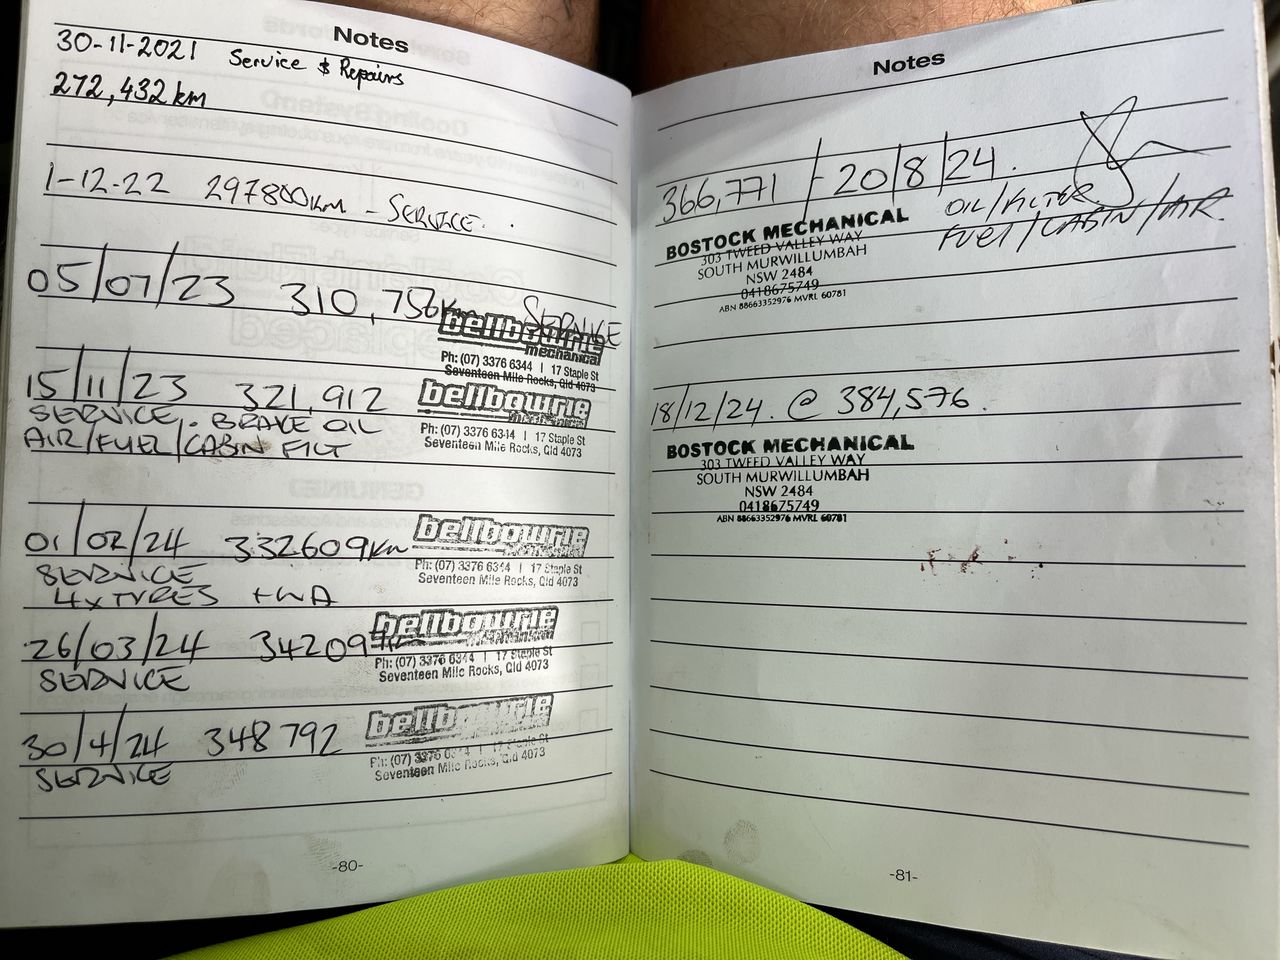 Notes
30-11-2021 Service & Repairs
272,432 km
1-12-22 297800KM - SERVICE.
05/07/23 310,756Km SERVICE
bellbowrie
mechanical
Ph: (07) 3376 6344 | 17 Staple St
Seventeen Mile Rocks, Qld 4073
15/11/23 321,912
SERVICE. BRAKE OIL
AIR/FUEL/CABIN FILT
bellbowrie
mechanical
Ph: (07) 3376 6344 | 17 Staple St
Seventeen Mile Rocks, Qld 4073
01/02/24 332609Km
SERVICE
4xTYRES + WA
bellbowrie
mechanical
Ph: (07) 3376 6344 | 17 Staple St
Seventeen Mile Rocks, Qld 4073
26/03/24 342097Km
SERVICE
bellbowrie
mechanical
Ph: (07) 3376 6344 | 17 Staple St
Seventeen Mile Rocks, Qld 4073
30/4/24 348792
SERVICE
bellbowrie
Ph: (07) 3376 6344 | 17 Staple St
Seventeen Mile Rocks, Qld 4073
-80-
Notes
366,771 - 20/8/24.
OIL/FILTER.
FUEL/CABIN/AIR.
BOSTOCK MECHANICAL
303 TWEED VALLEY WAY
SOUTH MURWILLUMBAH
NSW 2484
0418675749
ABN 88663352976 MVRL 60781
18/12/24. @ 384,576.
BOSTOCK MECHANICAL
303 TWEED VALLEY WAY
SOUTH MURWILLUMBAH
NSW 2484
0418675749
ABN 88663352976 MVRL 60781
-81-